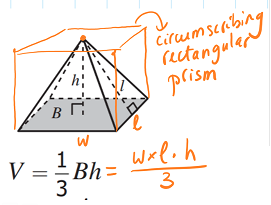 circumscribing
rectangular
prism
h
l
B
l
w
V = 1/3 Bh = w×l·h/3